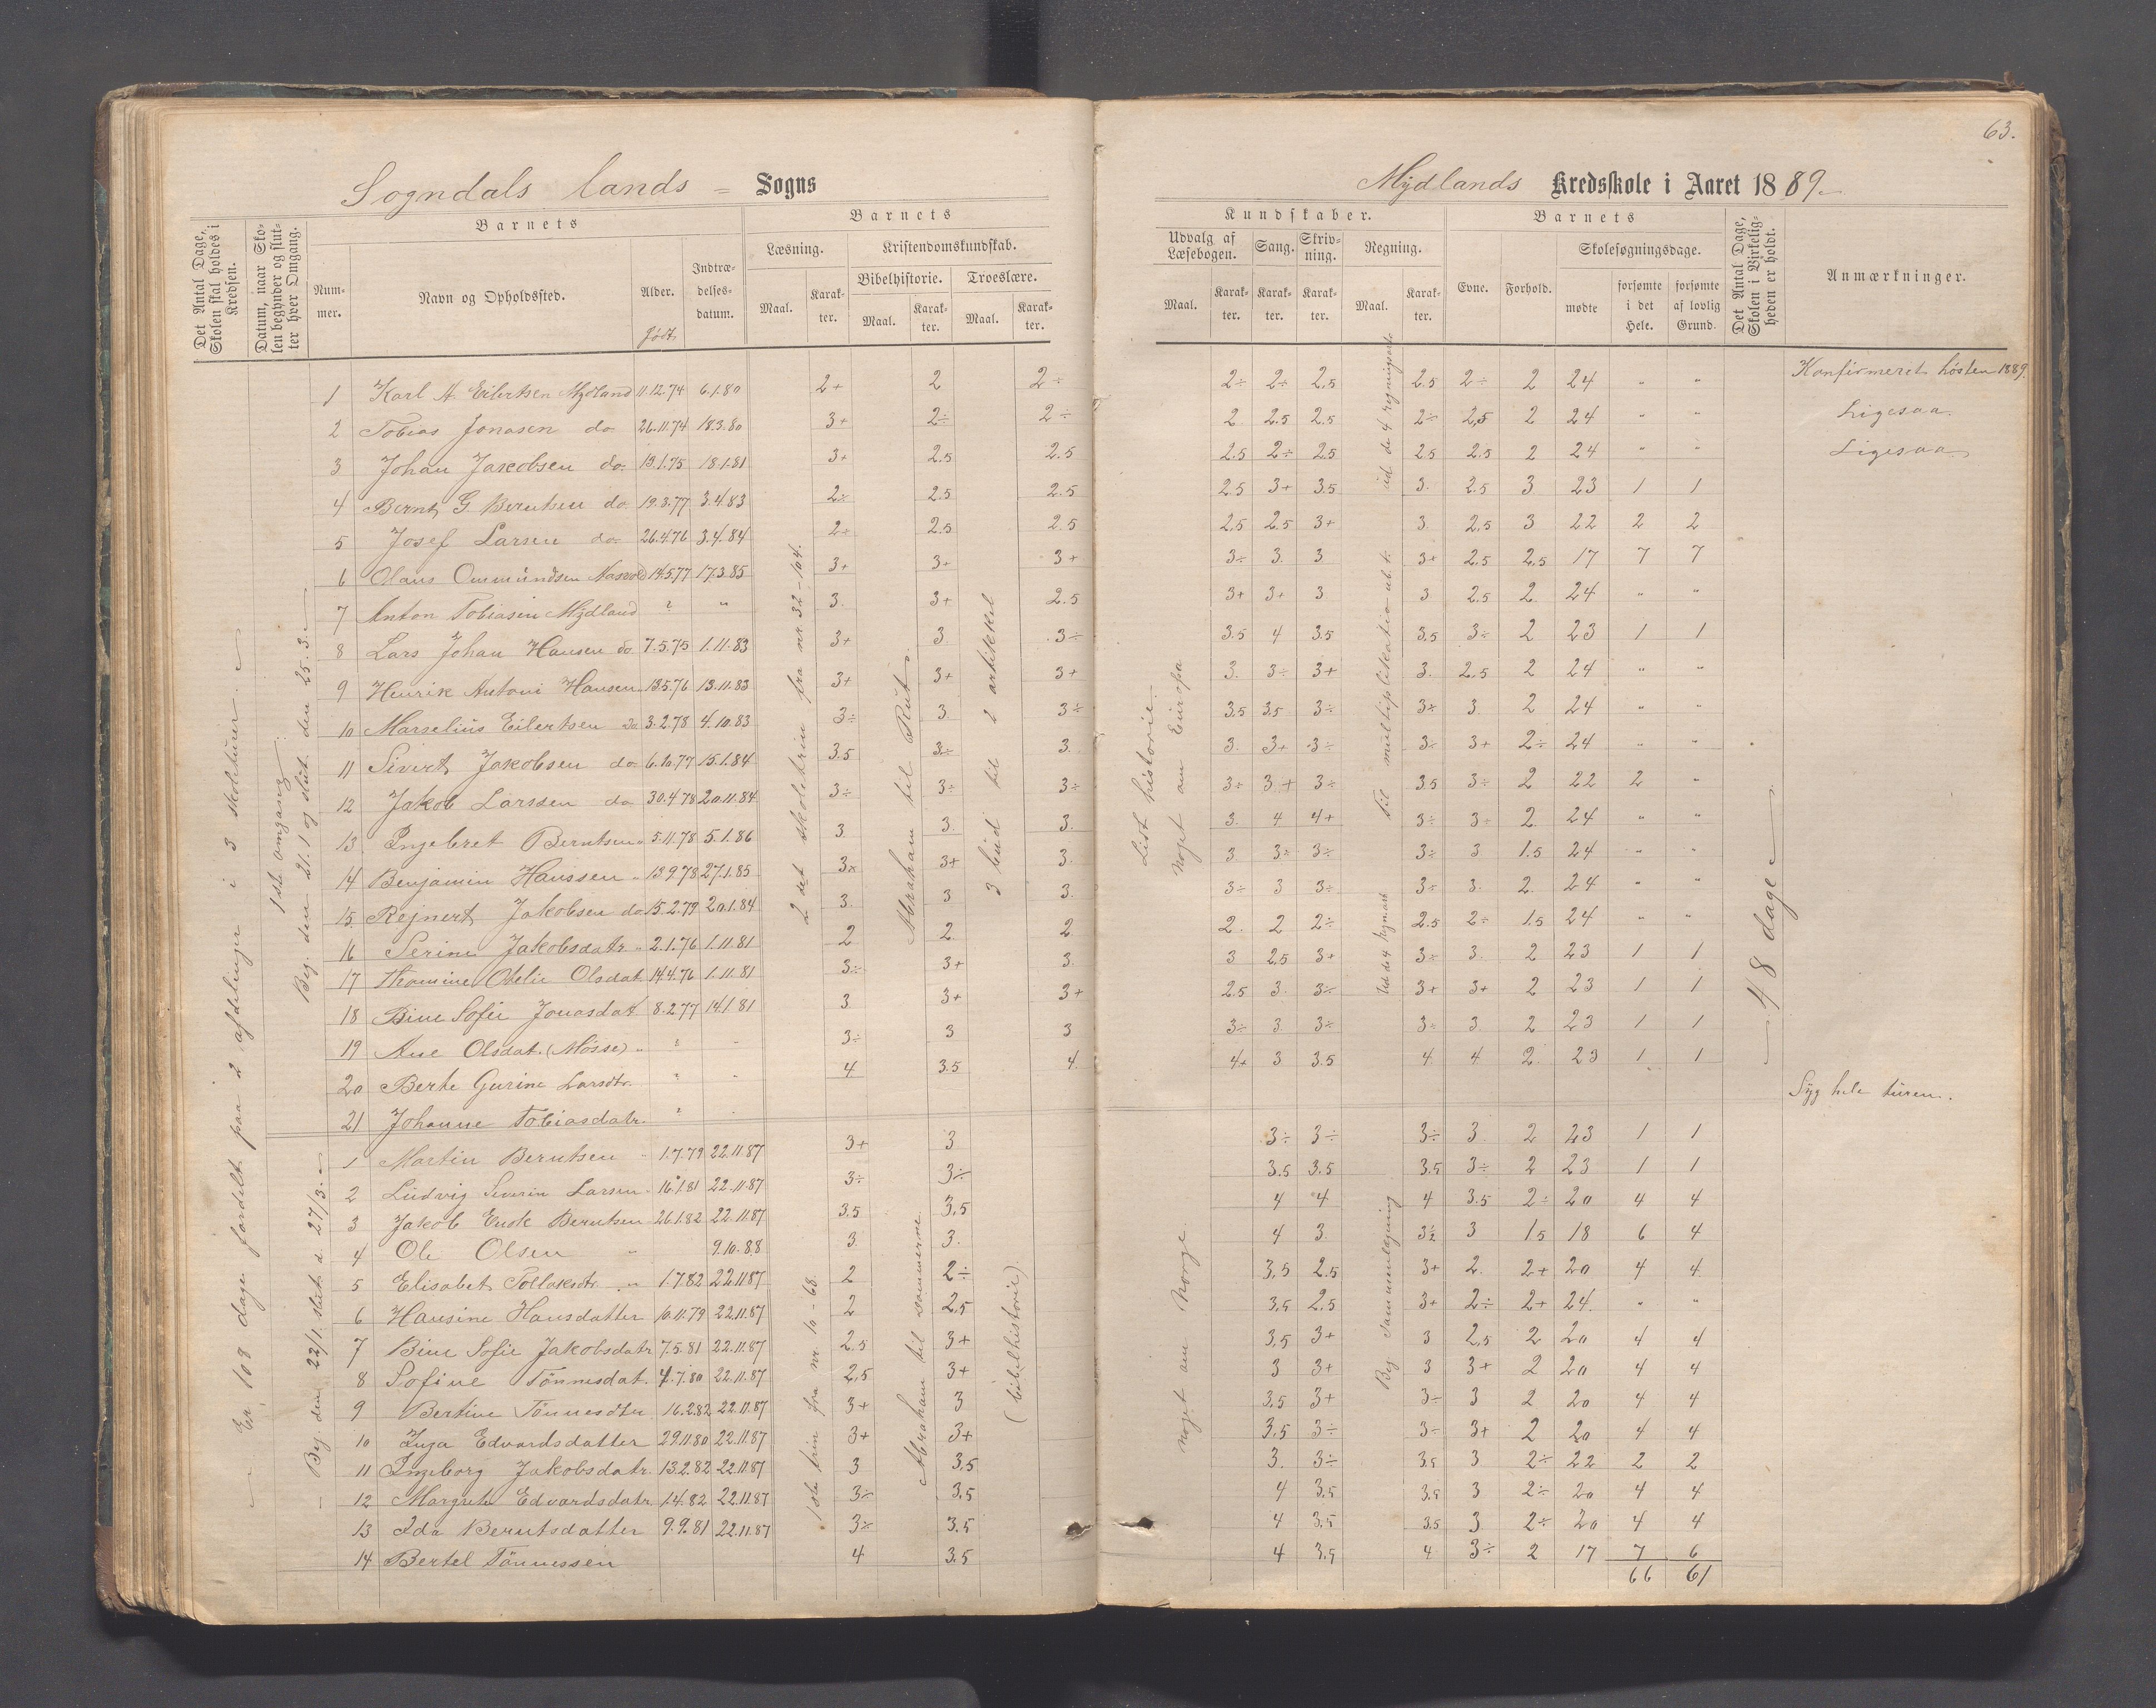 63.
Sogndals lands = Sogns
Mydlands Kredsskole i Aaret 1889.
Det Antal Dage, Skolen skal holdes i Kredsen.
Datum, naar Skolen begynder og slutter hver Omgang.
Barnets
Nummer.
Navn og Opholdssted.
Alder. født
Indtrædelsesdatum.
Barnets
Læsning.
Maal.
Karakter.
Kristendomskundskab.
Bibelhistorie.
Maal.
Karakter.
Troeslære.
Maal.
Karakter.
Kundskaber.
Udvalg af Læsebogen.
Maal.
Karakter.
Sang.
Karakter.
Skrivning.
Karakter.
Regning.
Maal.
Karakter.
Barnets
Evne.
Forhold.
Skolesøgningsdage.
mødte
forsømte i det Hele.
forsømte af lovlig Grund.
Det Antal Dage, Skolen i Virkeligheden er holdt.
Anmærkninger.
Er 108 dage fordelt paa 2 afdelinger i 3 skoleturer.
1ste omgang
Beg. den 21.1 og slut. den 25.3.
2det skoletrin fra nr. 32-104.
Abraham til Rut.
3 bud til 2 artikkel
Lidt historie.
Noget om Europa
48 dage
1 Karl A. Eilertsen Mydland 11.12.74 6.1.80 2+ 2 2÷ 2÷ 2÷ 2,5 2.5 2÷ 2 24 " " Konfirmeret høsten 1889.
2 Tobias Jonasen do 26.11.74 18.3.80 3+ 2÷ 2÷ 2 2.5 2.5 2÷ 2,5 2 24 " " Ligesaa.
3 Johan Jakobsen do 19.1.75 18.1.81 3+ 2.5 2.5 2.5 2÷ 2.5 2.5 2.5 2 24 " " Ligesaa
4 Bernt G. Berntsen do 19.3.77 3.4.83 2÷ 2.5 2.5 2.5 3+ 3.5 3. 2.5 3 23 1 1
5 Josef Larsen do 26.4.76 3.4.84 2÷ 2.5 2.5 2,5 2.5 3+ 3 2,5 3 22 2 2
6 Olaus Ommundsen 14.5.77 17.3.85 3+ 3+ 3+ 3÷ 3. 3 3+ 2.5 2.5 17 7 7
7 Anton Tobiasen Mydland ? " 3. 3+ 2.5 3+ 3+ 3 3 2.5 2 24 " "
8 Lars Johan Hansen do 7.5.75 1.11.83 3+ 3. 3÷ 3.5 4 3.5 3,5 3÷ 2 23 1 1
9 Henrik Antoni Hansen 13.5.76 13.11.83 3+ 3+ 3+ 3. 3÷ 3+ 3. 2.5 2 24 " "
10 Marselius Eilertsen do 3.2.78 4.10.83 3÷ 3. 3÷ 3,5 3.5 3÷ 3+ 3. 2 24 " "
11 Sivert Jakobsen do 6.10.77 15.1.84 3.5 3÷ 3. 3. 3+ 3÷ 3÷ 3+ 2÷ 24 " "
12 Jakob Larssen do 30.4.78 20.11.84 3÷ 3÷ 3÷ 3÷ 3+ 3÷ 3.5 3÷ 2 22 2 "
13 Ingebret Berntsen 5.11.78 5.1.86 3 3. 3. 3. 4 4+ 3÷ 3÷ 2. 24 " "
14 Benjamin Hanssen " 13.9.78 27.1.85 3+ 3+ 3. 3 3÷ 3÷ 3÷ 3 1.5 24 " "
15 Rejnert Jakobsen do 15.2.79 20.1.84 3. 3 3. 3÷ 3 3÷ 3÷ 3. 2. 24 " "
16 Serine Jakobsdatr. " 2.1.76 1.11.81 2 2 2 2. 2 2÷ 2.5 2÷ 1.5 24 " "
17 Odelie Olsdat. 14.4.76 1.11.81 3÷ 3+ 3. 3 2,5 3+ 3÷ 3. 2 23 1 1
18 Bine Sofie Jonasdat. 8.2.77 14.1.81 3 3+ 3+ 2.5 3. 3÷ 3+ 3+ 2 23 1 1
19 Ane Olsdat. (Mosse) " " " 3÷ 3 3 3÷ 3 3÷ 3÷ 3. 2 23 1 1
20 Berte Gurine Larsdtr. " " 4 3.5 4 4+ 3 3.5 4. 4 2. 23 1 1
21 Johanne Tobiasdatr. " " Syg hele turen.
Beg. den 22/1. slut. d. 27/3.
1ste trin fra nr. 10-68.
Abraham til dommerne (bibelhistorie)
Noget om Norge.
Beg. Sammenlægning
1 Martin Berntsen " 1.7.79 22.11.87 3+ 3 3÷ 3÷ 3÷ 3 2 23 1 1
2 Ludvig Severin Larsen " 16.1.81 22.11.87 3÷ 3÷ 3.5 3.5 3.5 3÷ 2 23 1 1
3 Jakob Enok Berntsen 26.1.82 22.11.87 3.5 3,5 4 4 4 3.5 2÷ 20 4 4
4 Ole Olsen " 9.10.88 3. 3. 4 3. 3½ 3 1.5 18 6 4
5 Elisabet Tollaksdtr. " 1.7.82 22.11.87 2 2÷ 3,5 2.5 3+ 2. 2+ 20 4 4
6 Hansine Hansdatter 10.11.79 22.11.87 2 2,5 3,5 2.5 3+ 2÷ 2+ 24. " "
7 Bine Sofie Jakobsdatr 7.5.81 22.11.87 2.5 3+ 3,5 3+ 3 2,5 2 20 4 4
8 Sofine Tönnesdat. 4.7.80 22.11.87 2,5 3+ 3 3+ 3 3+ 2 20 4 4
9 Bertine Tönnesdtr 16.2.82 22.11.87 3+ 3 3,5 3+ 3÷ 3 2 20 4 4
10 Inga Edvardsdatter 29.11.80 22.11.87 3+ 3+ 3,5 3÷ 3÷ 3+ 2 20 4 4
11 Ingeborg Jakobsdatr. 13.2.82 22.11.87 3 3,5 3. 3÷ 3.5 3. 2÷ 22 2 2
12 Margrete Edvardsdatr 1.4.82 22.11.87 3÷ 3.5 4 3.5 3.5 3 2÷ 20 4 4
13 Ida Berntsdatter 9.9.81 22.11.87 3÷ 3.5 4 3,5 3.5 3 2÷ 20 4 4
14 Bertel Tönnessen 4 3.5 4 3,5 4 3÷ 2 17 7 6
66 61